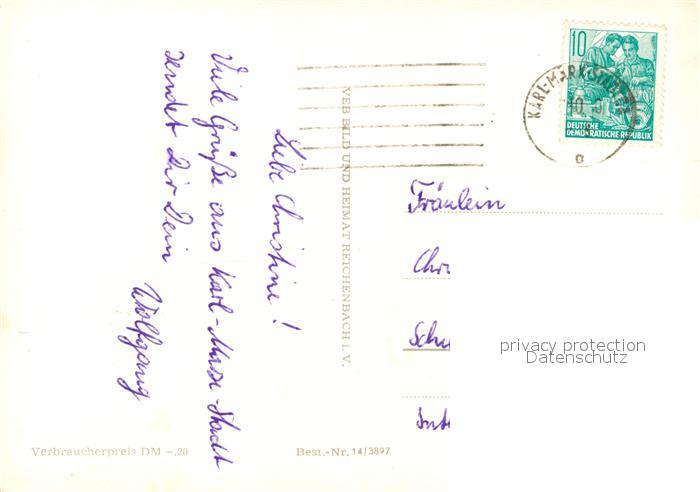 Liebe Christine!
Viele Grüße aus Karl-Marx-Stadt
sendet Dir Dein
Wolfgang
VEB BILD UND HEIMAT REICHENBACH I. V.
10
DEUTSCHE
DEMOKRATISCHE REPUBLIK
KARL-MARX-STADT
a
Fräulein
Chri
Schu
privacy protection
Datenschutz
Verbraucherpreis DM -,20
Best.-Nr. 14/3897